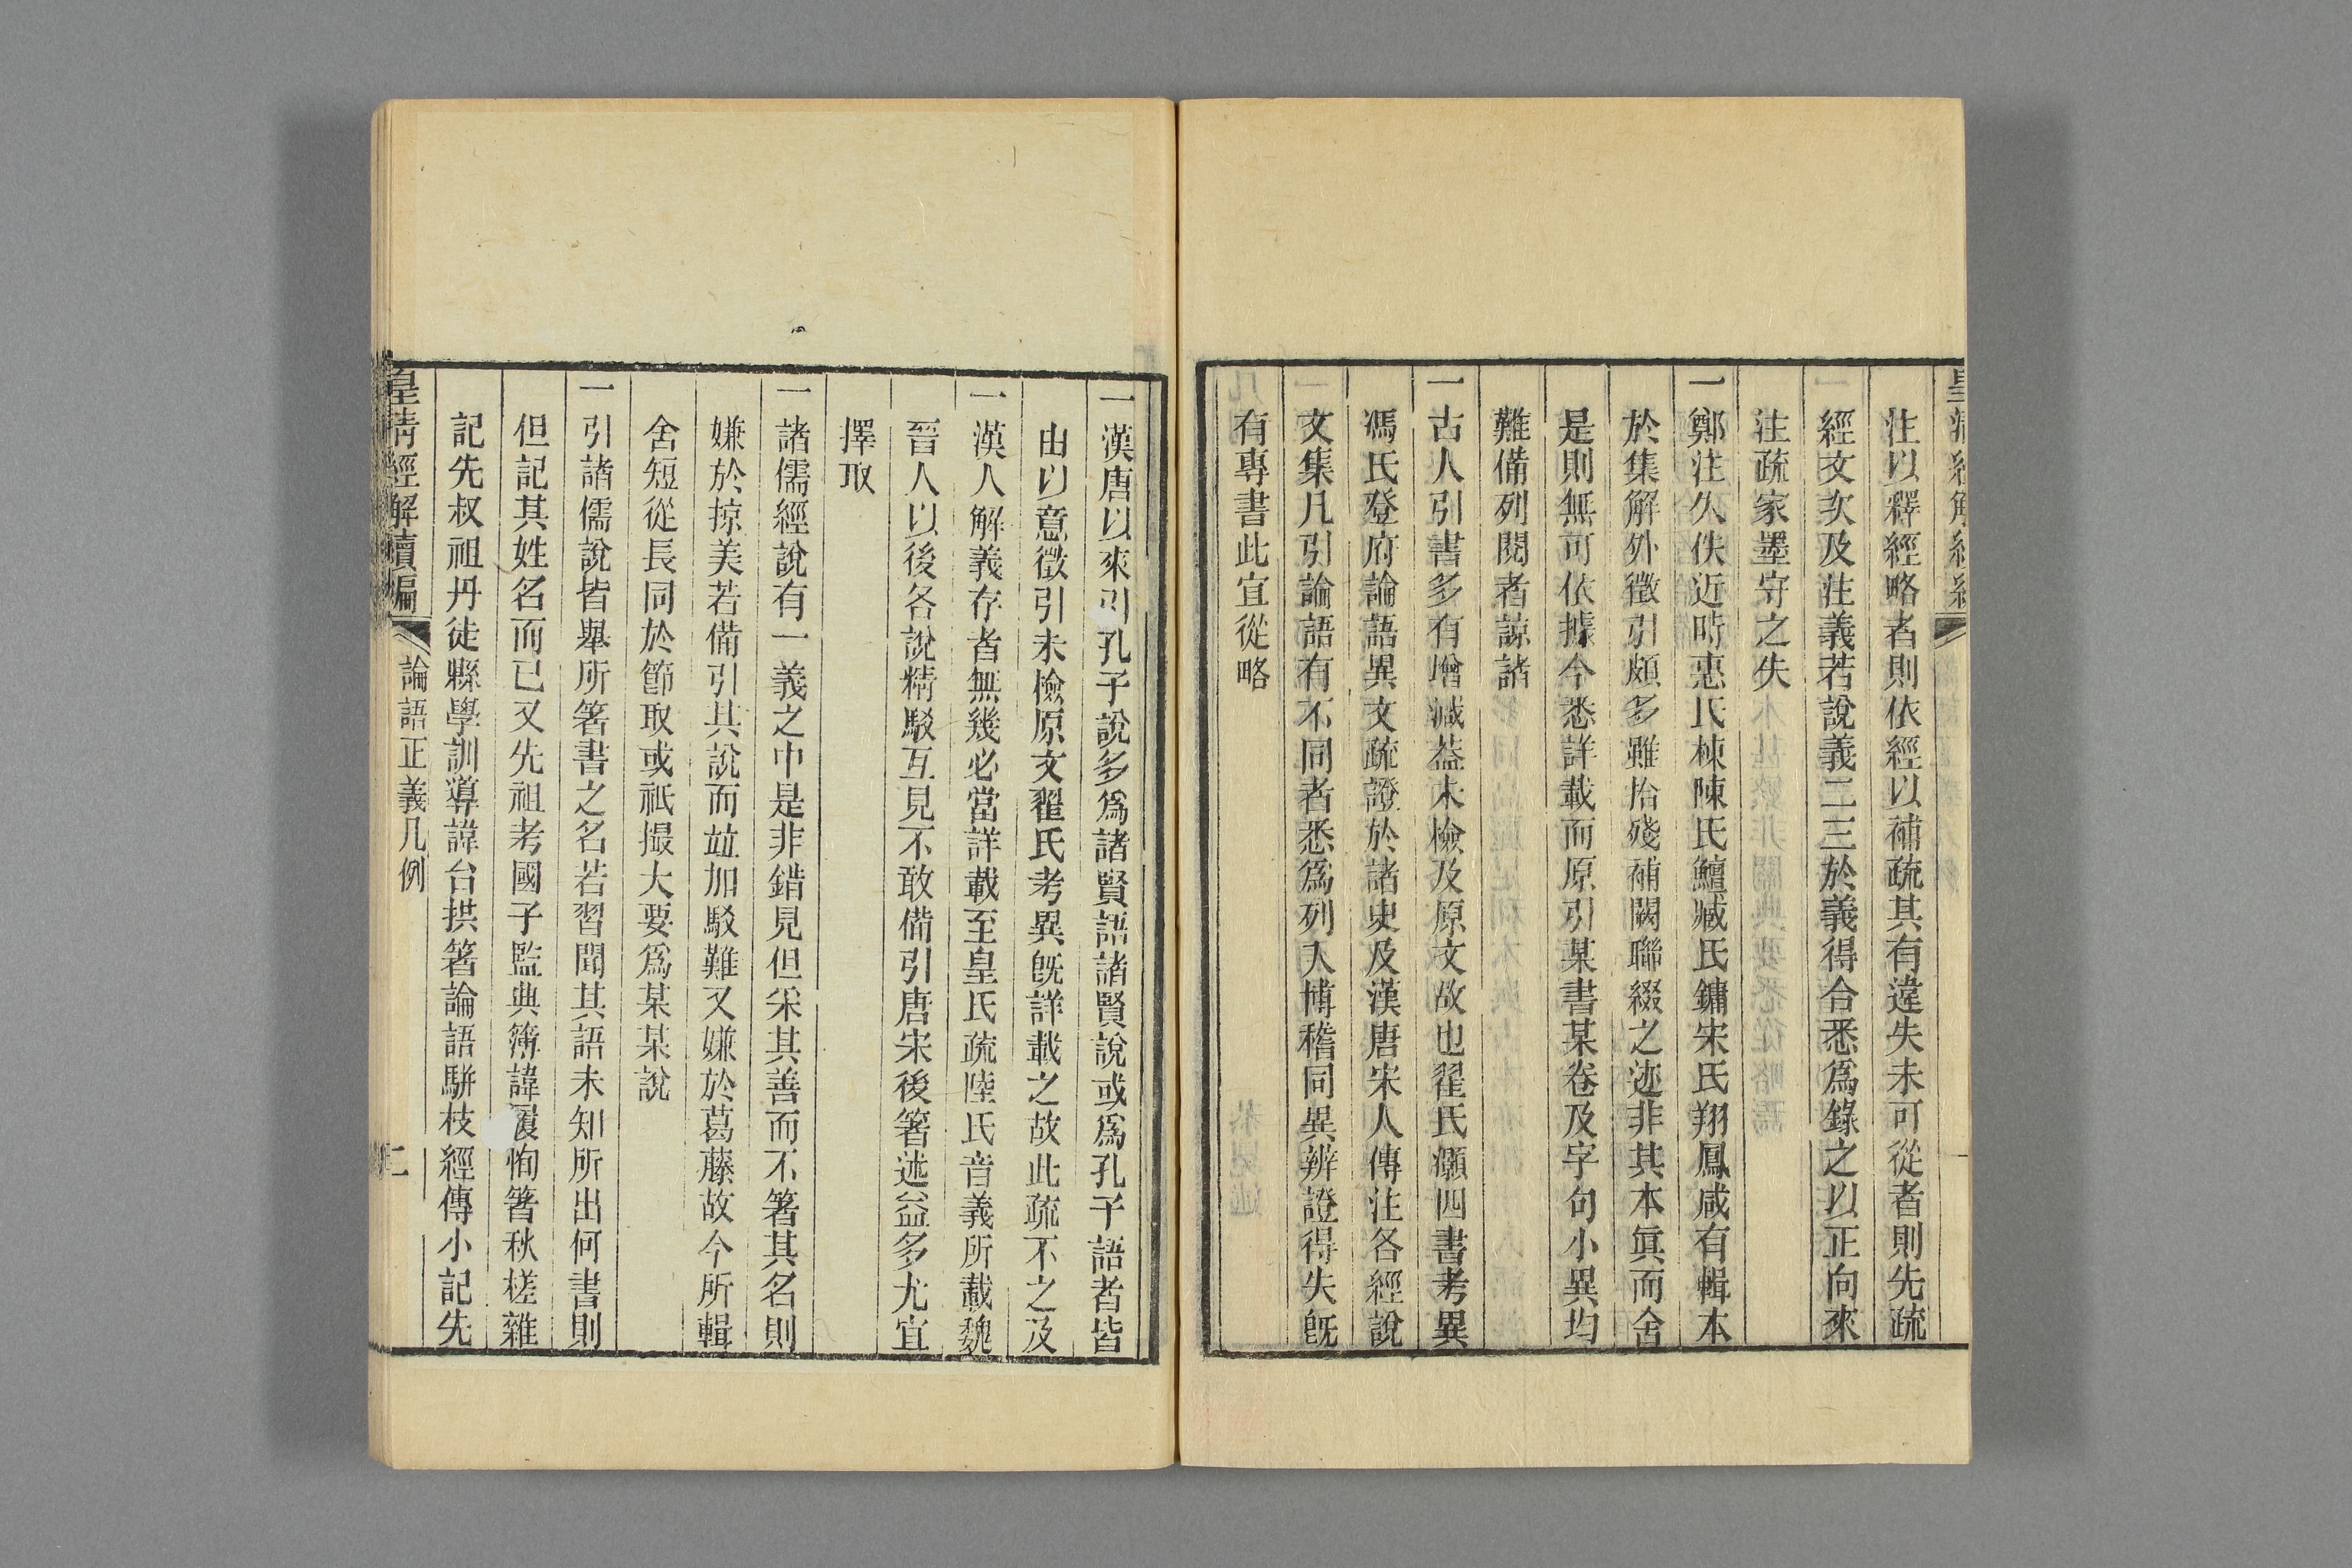 注以釋經略者則依經以補疏其有違失未可從者則先疏
經文次及注義若說義二三於義得合悉爲錄之以正向來
注疏家墨守之失
一鄭注久佚近時惠氏棟陳氏鱣臧氏鏞宋氏翔鳳咸有輯本
於集解外徵引頗多雖拾殘補闕聯綴之迹非其本眞而舍
是則無可依據今悉詳載而原引某書某卷及字句小異均
難備列閱者諒諸
一古人引書多有增減葢未檢及原文故也翟氏灝四書考異
馮氏登府論語異文疏證於諸史及漢唐宋人傳注各經說
文集凡引論語有不同者悉爲列入博稽同異辨證得失旣
有專書此宜從略
一漢唐以來引孔子說多爲諸賢語諸賢說或爲孔子語者皆
由以意徵引未檢原文翟氏考異旣詳載之故此疏不之及
一漢人解義存者無幾必當詳載至皇氏疏陸氏音義所載魏
晉人以後各說精駁互見不敢備引唐宋後箸述益多尤宜
擇取
一諸儒經說有一義之中是非錯見但采其善而不箸其名則
嫌於掠美若備引其說而竝加駁難又嫌於葛藤故今所輯
舍短從長同於節取或祇撮大要爲某某說
一引諸儒說皆舉所箸書之名若習聞其語未知所出何書則
但記其姓名而已又先祖考國子監典簿諱履恂箸秋槎雜
記先叔祖丹徒縣學訓導諱台拱箸論語駢枝經傳小記先
皇清經解續編 論語正義凡例 二